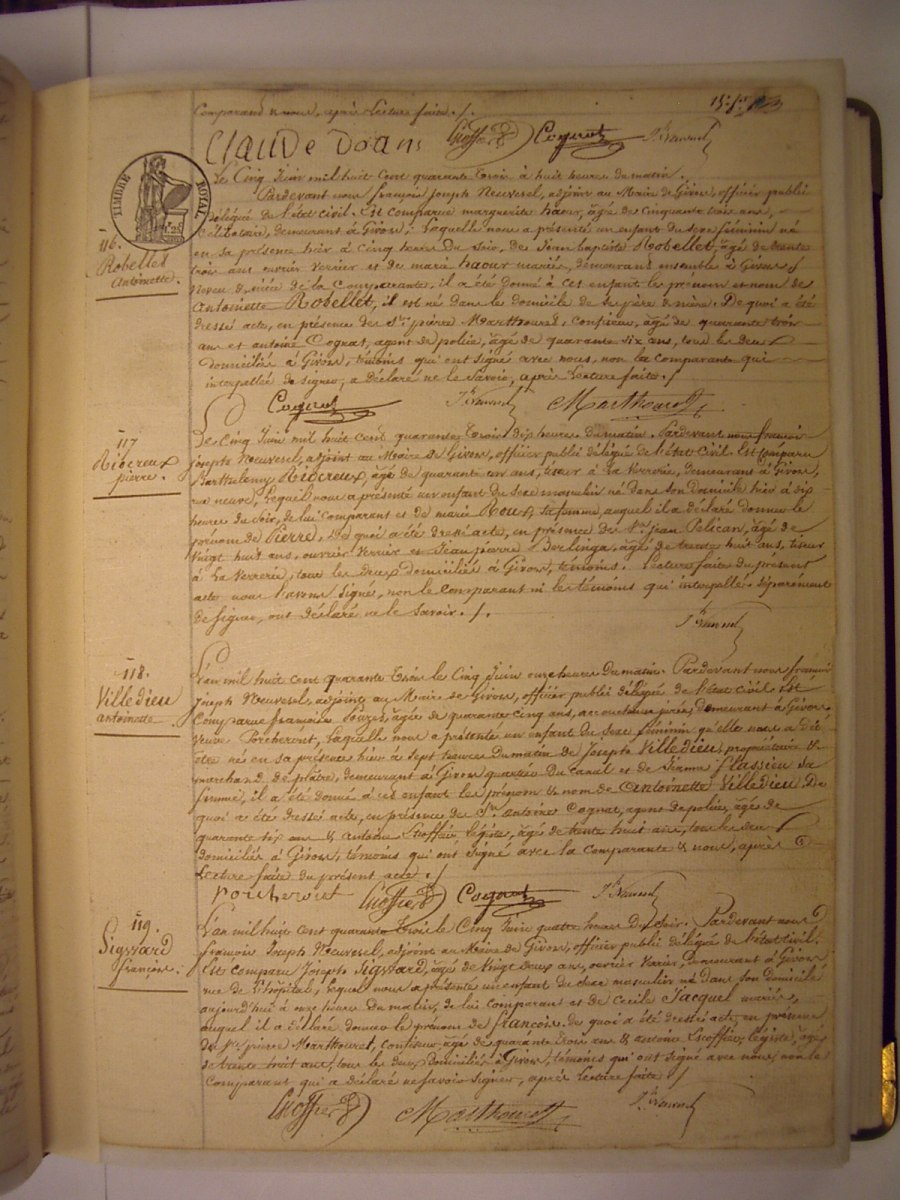 Comparant & nous, après Lecture faite ./.
Claude Doans Escoffier Cognat
TIMBRE ROYAL
Le Cinq Juin mil huit Cent quarante Trois à huit heures du matin.
Pardevant nous françois Joseph Neuvesel, adjoint au Maire de Givors, officier public
délégué de l'état civil. Est comparue marguerite haour, âgée de Cinquante trois ans,
Célibataire, demeurant à Givors, Laquelle nous a présenté un enfant du sexe féminin né
116.
Robellet
Antoinette.
en sa présence hier à Cinq heures Du soir, De Jean baptiste Robellet, âgé de trente
trois ans ouvrier verrier et de marie haour mariés, demeurans ensemble à Givors,
neveu & nièce de la Comparante, il a été donné à cet enfant le prénom et nom de
Antoinette Robellet, il est né dans le domicile de ses père & mère. De quoi a été
dressé acte, en présence des Srs pierre Marthouret, Confiseur, âgé de quarante trois
ans et antoine Cognat, agent de police, âgé de quarante six ans, tous les deux
domiciliés à Givors, témoins qui ont signé avec nous, non la Comparante qui
interpellée de signer, a Déclaré ne le Savoir, après Lecture faite ./
Cognat Marthouret
117
Pierre.
Le Cinq Juin mil huit Cent quarante Trois dix heures Du matin. Pardevant nous françois
joseph Neuvesel, adjoint au Maire de Givors, officier public délégué de l'état Civil. Est Comparu
Barthelemy âgé de quarante ans, tiseur à La Verrerie, demeurant à Givors,
rue neuve, Lequel nous a présenté un enfant du Sexe masculin né dans son Domicile hier à six
heures du Soir, de lui Comparant et de marie Roux, sa femme, auquel il a déclaré donner le
prénom de Pierre. De quoi a été dressé acte, en présence de Srs jean Pélican, âgé de
Vingt huit ans, ouvrier Verrier et Jean pierre Berlinga, âgé de trente huit ans, tiseur
à La Verrerie, tous les deux domiciliés à Givors, témoins. Lecture faite du présent
acte nous l'avons Signé, non le comparant ni les témoins qui interpellés séparément
de signer, ont déclaré ne le Savoir ./.
118.
Villedieu
antoinette
L'an mil huit Cent quarante Trois le Cinq Juin onze heures Du matin. Pardevant nous françois
Joseph Neuvesel, adjoint au Maire de Givors, officier public délégué de l'état civil Est
Comparue françoise âgée de quarante cinq ans, accoucheuse jurée, demeurant à Givors
Veuve Porcheront, Laquelle nous a présenté un enfant du sexe féminin qu'elle nous a dit
être né en sa présence hier à Sept heures Du matin de Joseph Villedieu, propriétaire &
marchand de plâtre, demeurant à Givors quartier Du canal et de Jeanne Classieu sa
femme, il a été donné à cet enfant le prénom & nom de Antoinette Villedieu. De
quoi a été dressé acte, en présence des Srs antoine Cognat, agent de police, âgé de
quarante six ans & Antoine Escoffier légiste, âgé de trente huit ans, tous les deux
domiciliés à Givors, témoins qui ont signé avec la comparante & nous, après
Lecture faite du présent acte ./
porcheront Escoffier Cognat
119.
Sigward
françois.
L'an mil huit Cent quarante Trois le Cinq Juin quatre heures Du Soir. Pardevant nous
françois Joseph Neuvesel, adjoint au Maire de Givors, officier public délégué de l'état Civil.
Est comparu Joseph Sigward, âgé de Vingt Deux ans, ouvrier Verrier, demeurant à Givors
rue de L'hôpital, Lequel nous a présenté un enfant du sexe masculin né Dans son Domicile
aujourd'hui à onze heures Du matin, de lui Comparant et de Cécile Jacquel mariés,
auquel il a déclaré donner le prénom de françois. de quoi a été dressé acte, en présence
des Srs pierre Marthouret, confiseur, âgé de quarante Trois ans & antoine Escoffier, légiste, âgé
de trente huit ans, tous les deux domiciliés à Givors, témoins qui ont signé avec nous, non le
Comparant qui a déclaré ne savoir Signer, après Lecture faite ./
Escoffier Marthouret